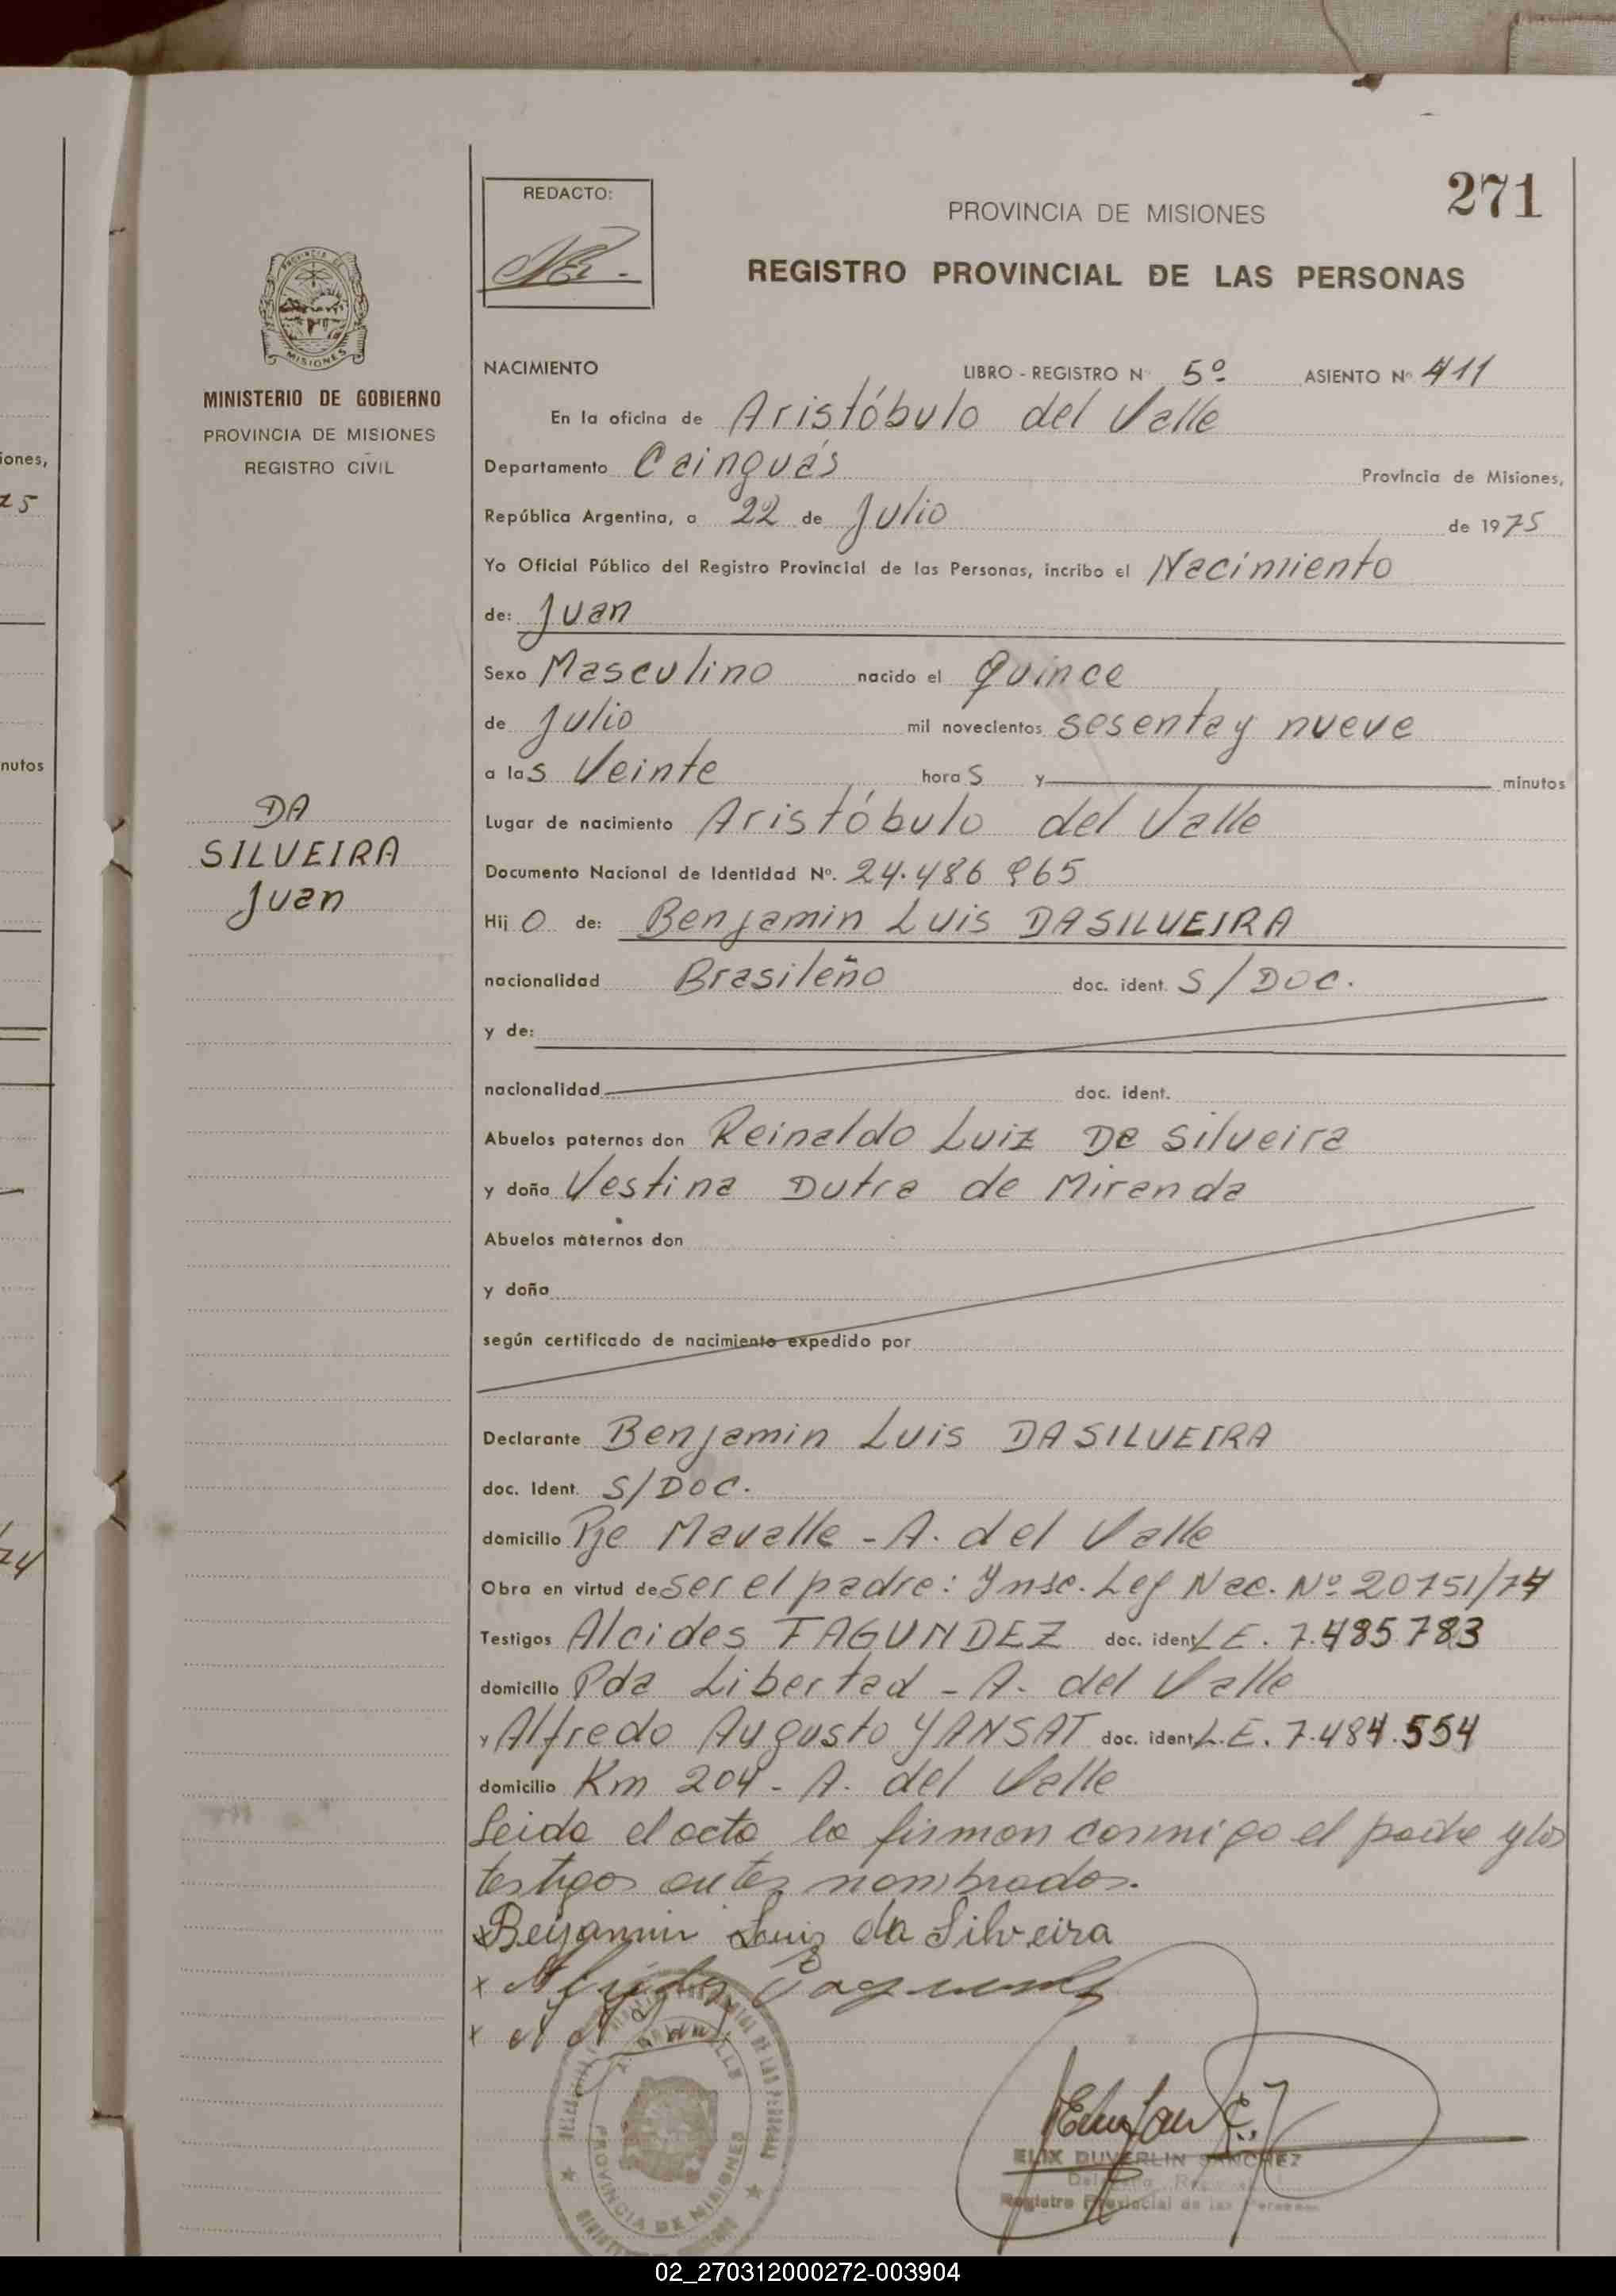 iones,
75
nutos
24
REDACTO:
271
PROVINCIA DE MISIONES
REGISTRO PROVINCIAL DE LAS PERSONAS
PROVINCIA DE
MISIONES
MINISTERIO DE GOBIERNO
PROVINCIA DE MISIONES
REGISTRO CIVIL
NACIMIENTO LIBRO - REGISTRO N 5º ASIENTO Nº 411
En la oficina de Aristóbulo del Valle
Departamento Cainguás Provincia de Misiones,
República Argentina, a 22 de Julio de 1975
Yo Oficial Público del Registro Provincial de las Personas, incribo el Nacimiento
de: Juan
Sexo Masculino nacido el Quince
de Julio mil novecientos sesenta y nueve
a las Veinte horas y minutos
DA
SILVEIRA
Juan
Lugar de nacimiento Aristóbulo del Valle
Documento Nacional de Identidad Nº. 24.486 965
Hijo de: Benjamin Luis DASILVEIRA
nacionalidad Brasileño doc. ident. S/DOC.
y de:
nacionalidad doc. ident.
Abuelos paternos don Reinaldo Luiz Da Silveira
y doña Vestina Dutra de Miranda
Abuelos maternos don
y doña
según certificado de nacimiento expedido por
Declarante Benjamin Luis DASILVEIRA
doc. Ident. S/DOC.
domicilio Pje Mavalle - A. del Valle
Obra en virtud de ser el padre: Ynsc. Ley Nac. Nº 20751/74
Testigos Alcides FAGUNDEZ doc. ident L E. 7.485 783
domicilio Pda Libertad - A. del Valle
y Alfredo Augusto YANSAT doc. ident L.E. 7.484.554
domicilio Km 204 - A. del Valle
Leida el acta la firman conmigo el padre y los
testigos antes nombrados.
x Benjamin Luiz da Silveira
x
x
PROVINCIA DE MISIONES
ELIX DUVERLIN SANCHEZ
Registro Provincial de las Personas
02_270312000272-003904